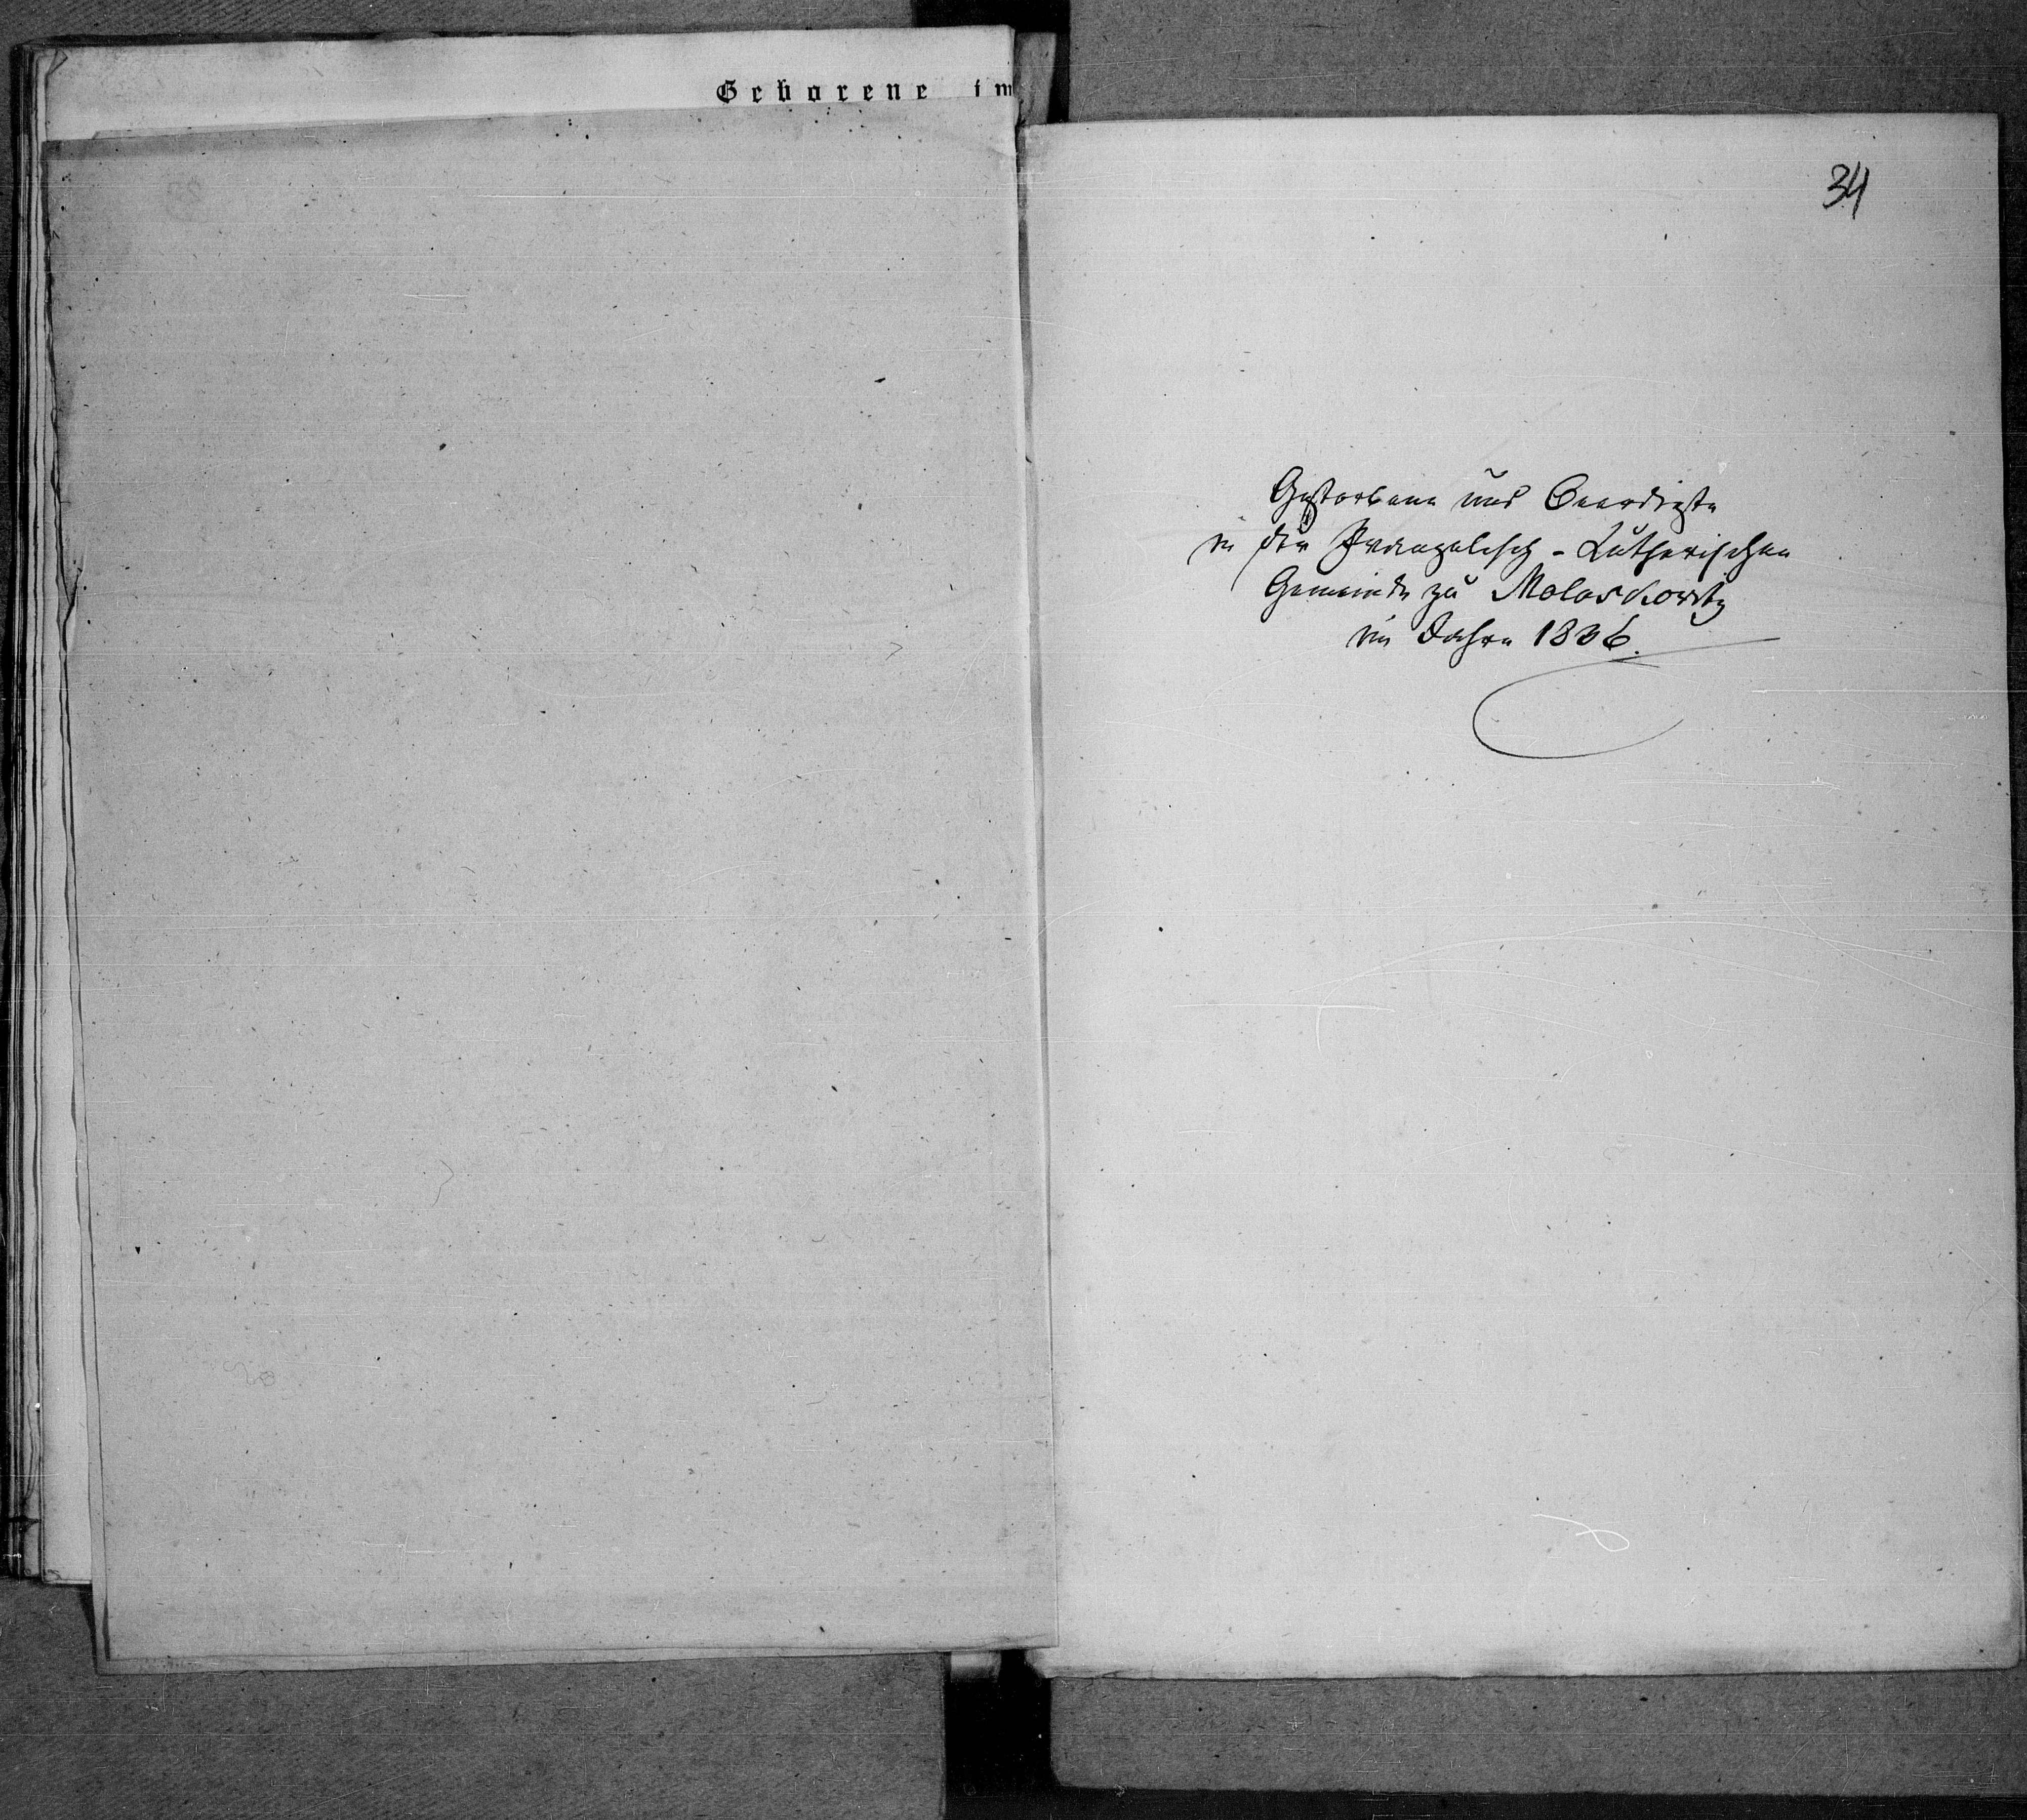 Geborene im
34
Gestorbene und Beerdigte
in der Evangelisch-Lutherischen
Gemeinde zu Moloskowitz
im Jahre 1836.